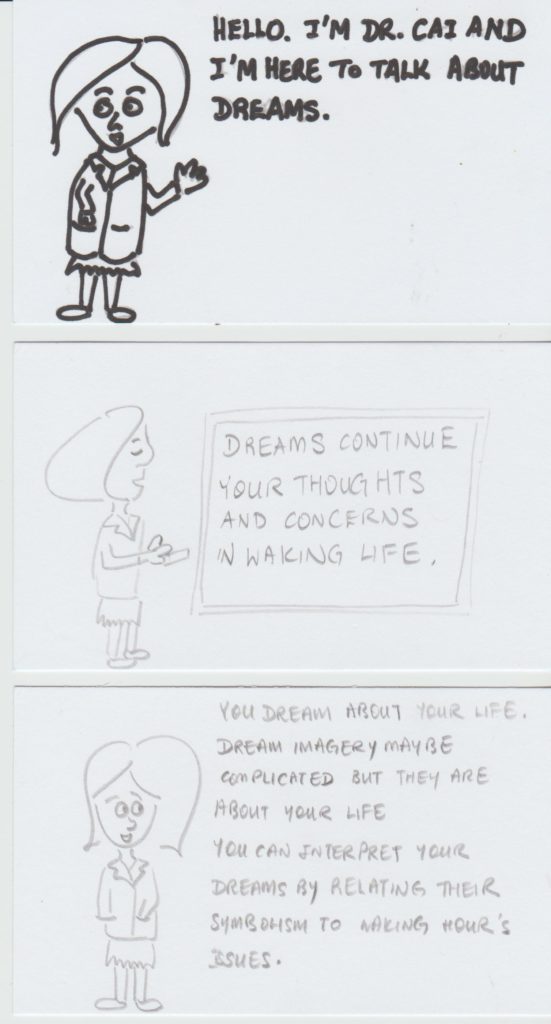 HELLO. I'M DR. CAI AND
I'M HERE TO TALK ABOUT
DREAMS.
DREAMS CONTINUE
YOUR THOUGHTS
AND CONCERNS
IN WAKING LIFE.
YOU DREAM ABOUT YOUR LIFE.
DREAM IMAGERY MAYBE
COMPLICATED BUT THEY ARE
ABOUT YOUR LIFE
YOU CAN INTERPRET YOUR
DREAMS BY RELATING THEIR
SYMBOLISM TO WAKING HOUR'S
ISSUES.